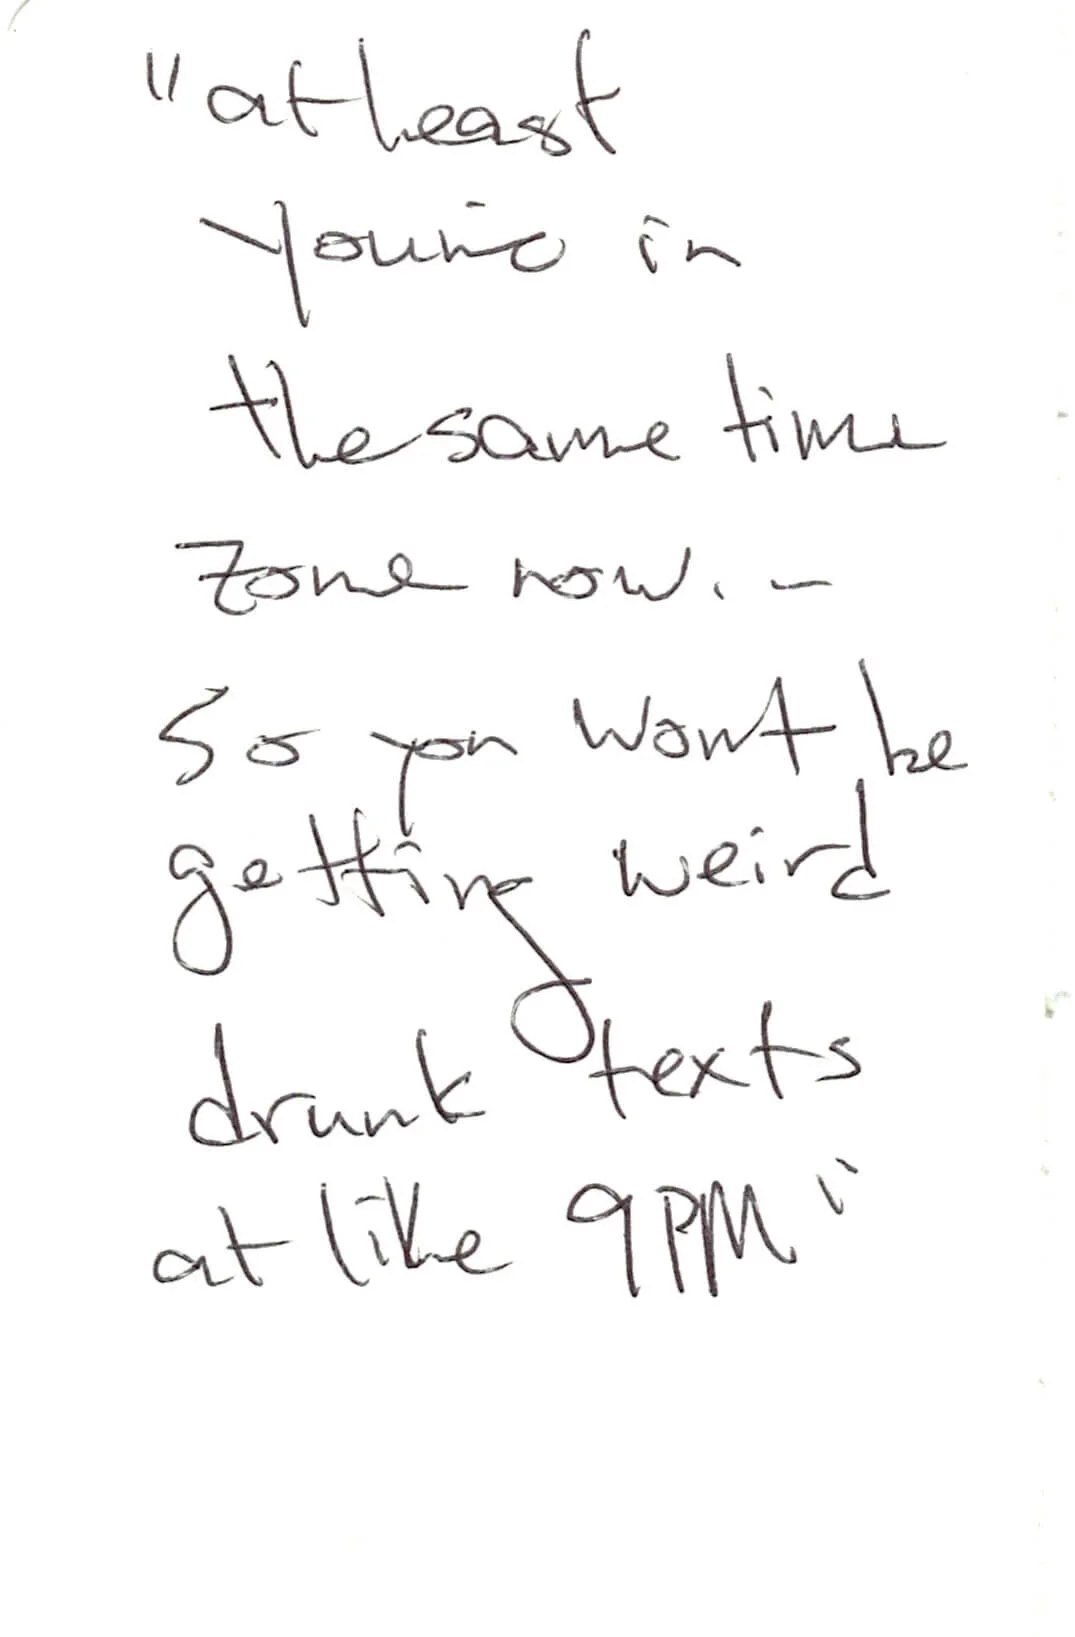 "at least
you're in
the same time
zone now. –
So you won't be
getting weird
drunk texts
at like 9PM"